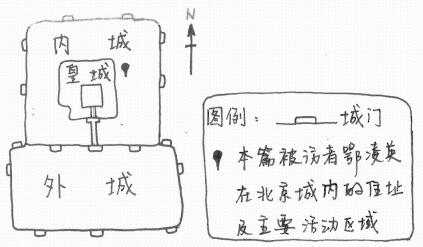 N
内 城
皇 城
外 城
图例: 城门
本篇被访者鄂凌英
在北京城内的住址
及主要活动区域